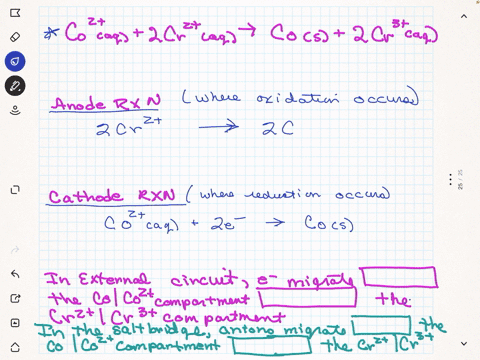 * Co²⁺(aq) + 2Cr²⁺(aq) → Co(s) + 2Cr³⁺(aq)
Anode RXN (where oxidation occurs)
2Cr²⁺ → 2C
Cathode RXN (where reduction occurs)
Co²⁺(aq) + 2e⁻ → Co(s)
In External circuit, e⁻ migrate
the Co|Co²⁺ compartment the
Cr²⁺|Cr³⁺ compartment
In the saltbridge, anions migrate the
Co|Co²⁺ compartment the Cr²⁺|Cr³⁺